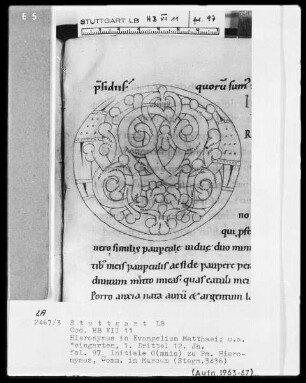 E 5
STUTTGART LB HB VII 11 fol. 97
p̄sidiis.
quorū sum
no
qui pse
utero similis paupcule uidue duo minu
tib; meis paupculis aeſt de paupere pen
duum mitto
Porro ancia nata aurū & argentum
LA
2467/3 Stuttgart LB
Cod. HB VII 11
Hieronymus in Evangelium Matthaei; u.a.
Weingarten, 1. Drittel 12. Jh.
fol. 97, Initiale O(mnis) zu Ps. Hiero-
nymus, Comm. in Marcum (Stegm.3436)
LA
(Aufn.1963-67)